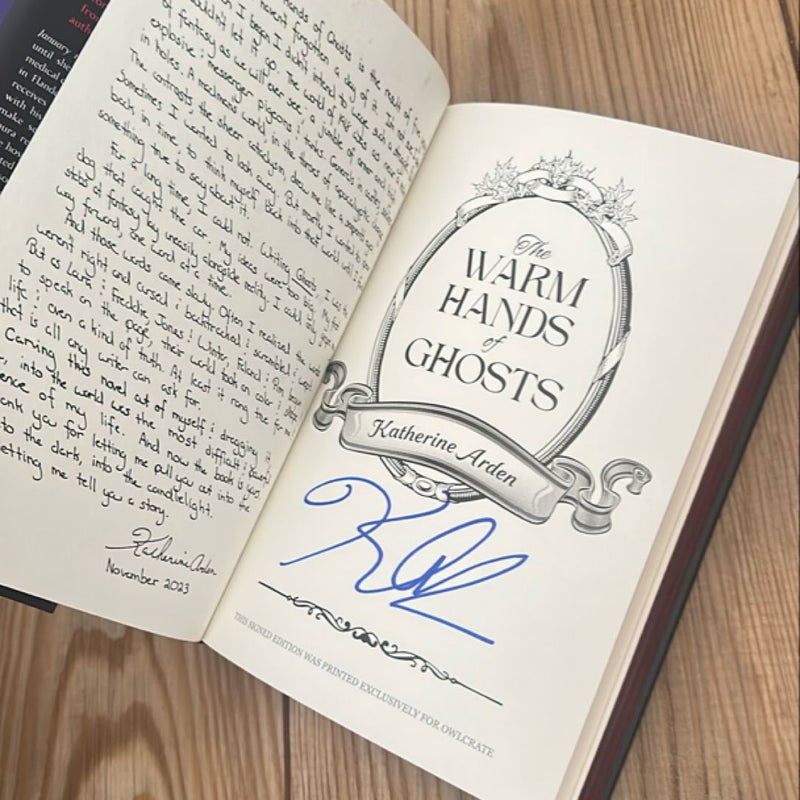 from
auth
January
until she
medical
in Flande
receives
with his
make se
aura re
Hands of Ghosts is the result of
moment forgotten a day of it. I'm not sure
when I began I didn't intend to write such a
couldn't let it go. The world of
of fantasy as we will ever see, a jumble of armor and
explosive; messenger pigeons; tanks. Generals in castles,
in holes. A mechanized world in the throes of apocalyptic
The contrasts, the sheer cataclysm, drew me like a serpent
Sometimes I wanted to look away. But mostly I wanted to
back, in time, to think myself back into that world until I
something true to say about it.
For a long time, I could not. Writing Ghosts, I was the
dog that caught the car. My ideas were too big. My
steps of fantasy lay uneasily alongside reality. I could only
way forward, one word at a time.
And those words came slowly. Often I realized the words
weren't right and cursed; backtracked; scrambled;
But as Laura; Freddie, Jones; Winter, Faland; Pim began
to speak on the page, their world took on color;
life; even a kind of truth. At least it rang true for me
that is all any writer can ask for.
Carving this novel out of myself; dragging it,
into the world was the most difficult;
ence of my life. And now the book is yours
ank you for letting me pull you out into the
to the dark, into the candlelight.
etting me tell you a story.
Katherine Arden
November 2023
The
WARM
HANDS
of
GHOSTS
Katherine Arden
THIS SIGNED EDITION WAS PRINTED EXCLUSIVELY FOR OWLCRATE